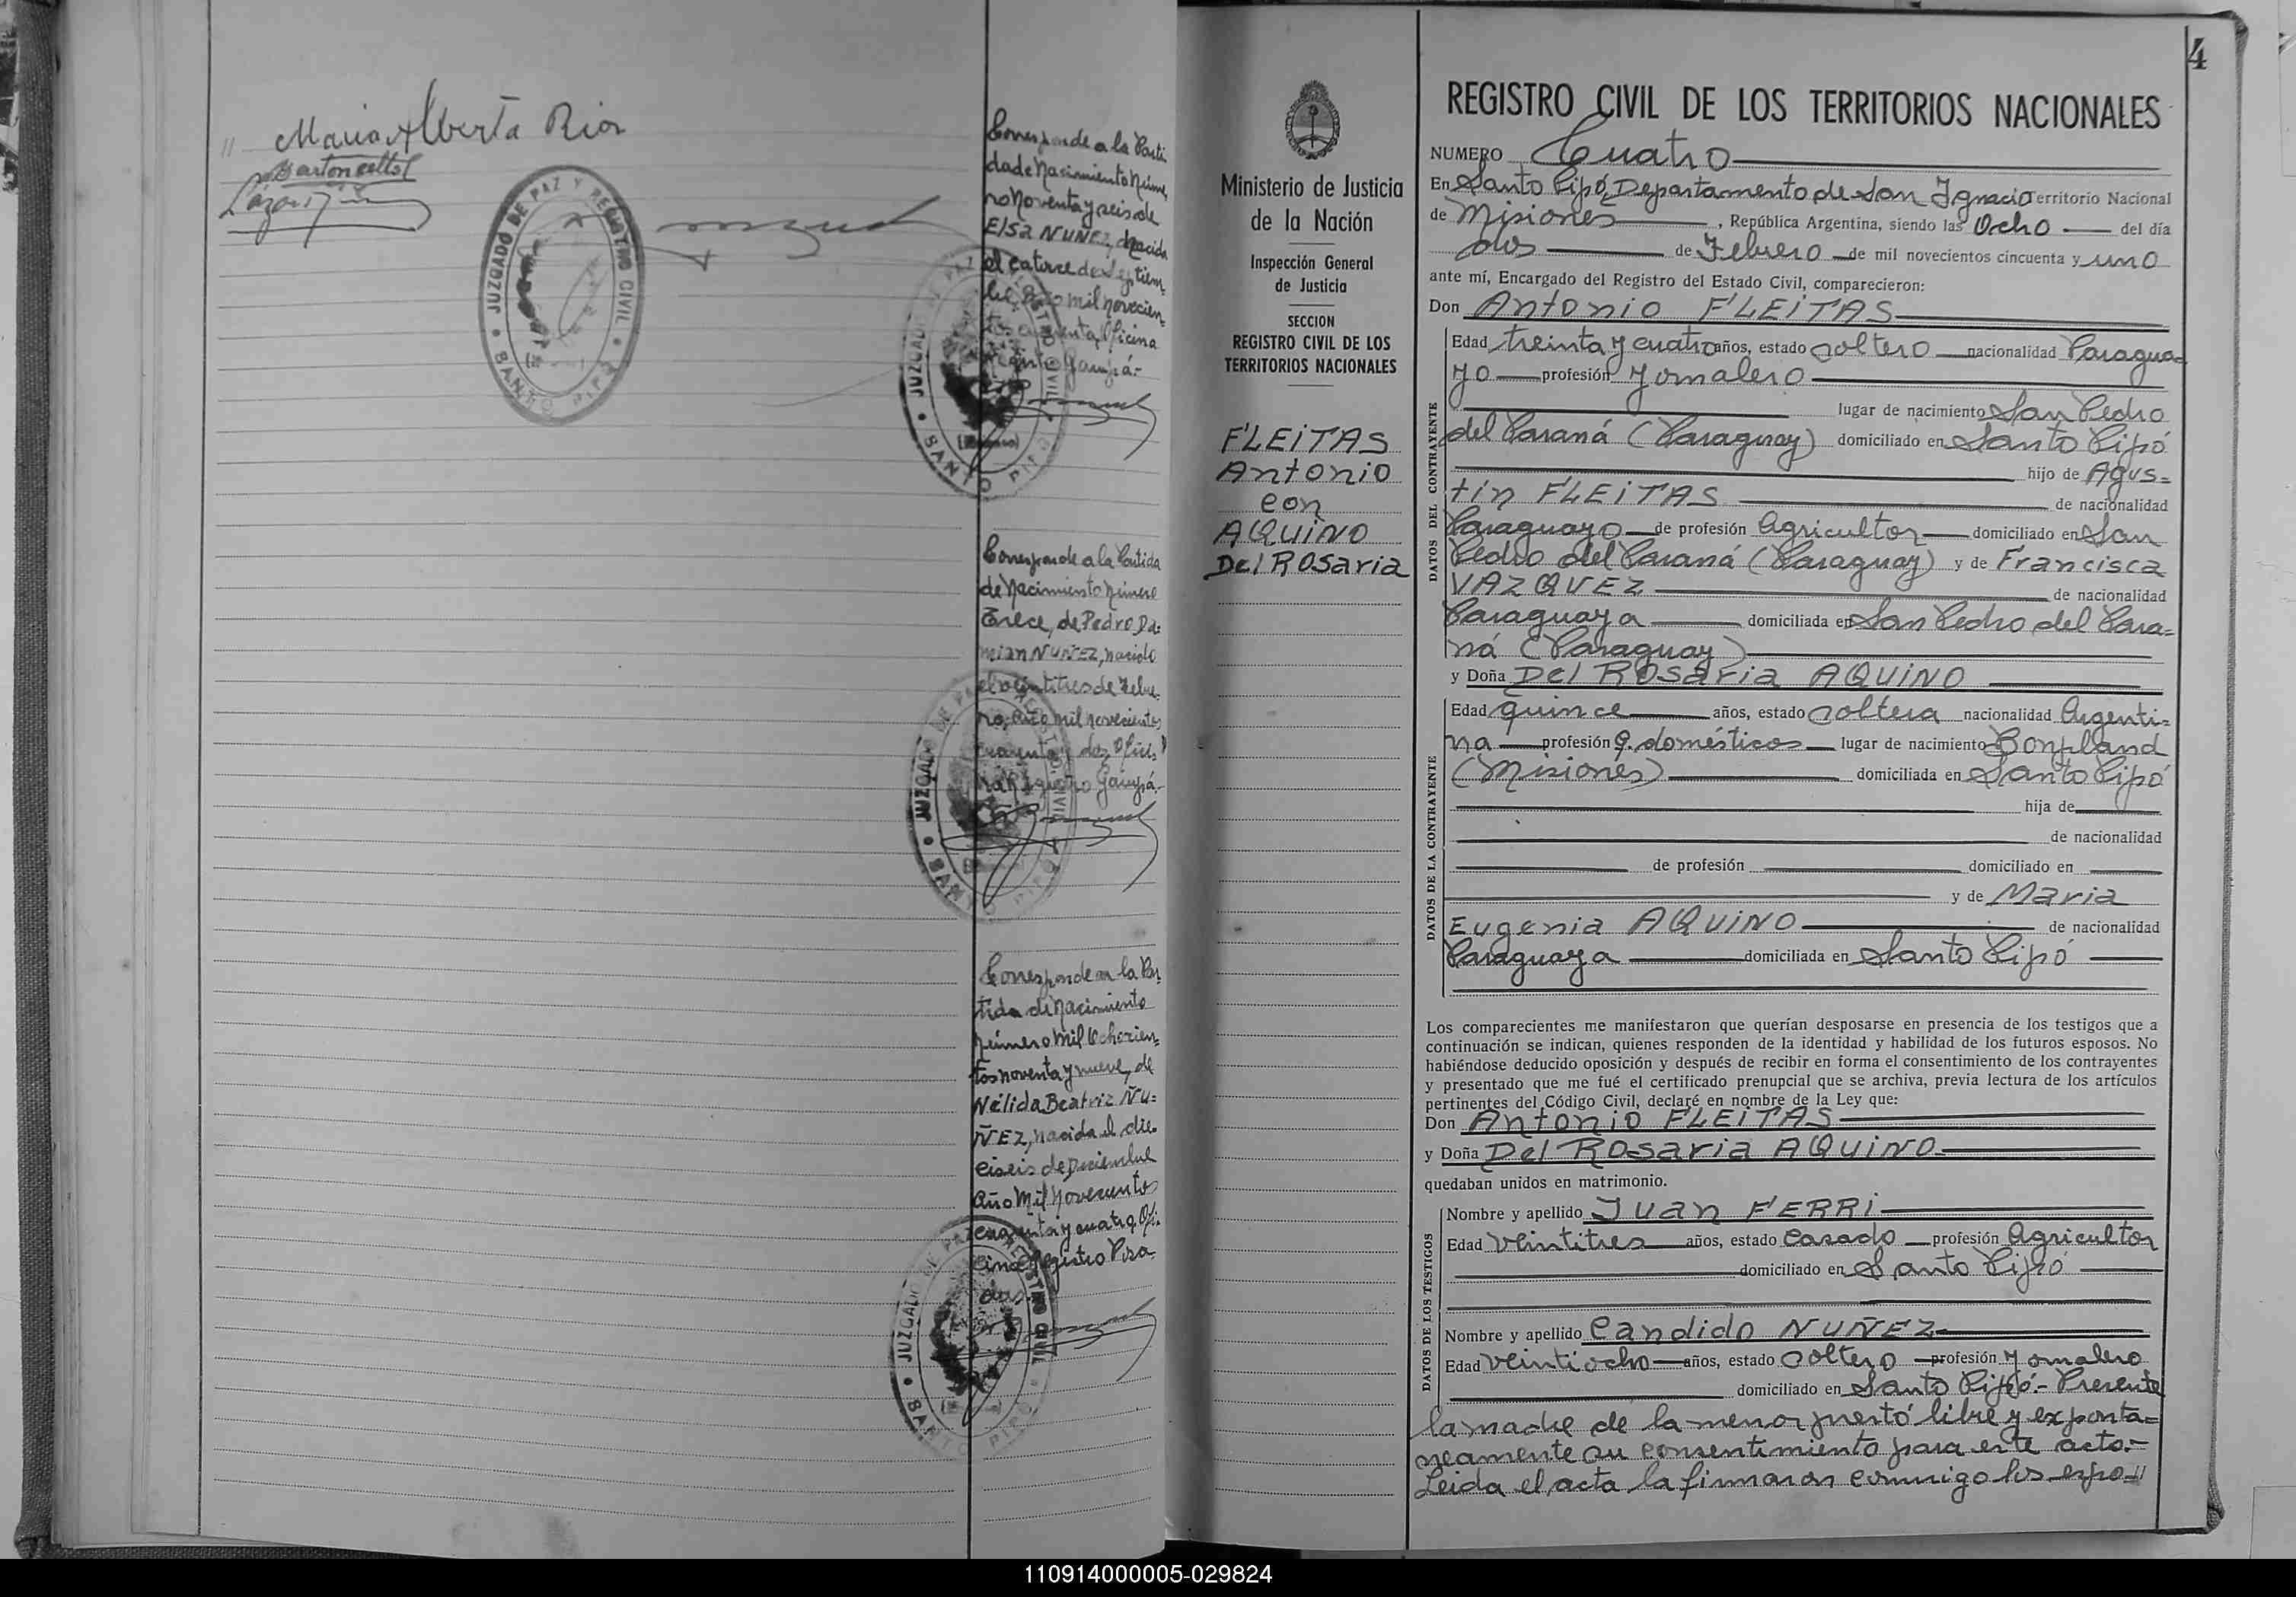 // Maria Alberta Rios
Bartoncellol
JUZGADO DE PAZ Y REGISTRO CIVIL
SANTO PIPO
Corresponde a la Parti
da de Nacimiento Núme
ro Noventa y seis de
Elsa NUÑEZ, nacida
el catorce de Septiem-
bre, Año mil novecien-
tos cuarenta, Oficina
Registro Garupá.-
JUZGADO DE PAZ Y REGISTRO CIVIL
SANTO PIPO
Corresponde a la Partida
de Nacimiento Número
Trece, de Pedro Da=
mian NUÑEZ, nacido
el veintitres de Febre-
ro, Año mil novecientos
cuarenta y dos, Ofici-
na Registro Garupá.-
JUZGADO DE PAZ Y REGISTRO CIVIL
SANTO PIPO
Corresponde a la Par-
tida de Nacimiento
Número Mil Ochocien=
tos noventa y nueve, de
Nélida Beatriz NU=
ÑEZ, nacida el die-
ciseis de Diciembre
Año Mil Novecientos
cuarenta y cuatro, Ofi-
cina Registro Posa-
das.
JUZGADO DE PAZ Y REGISTRO CIVIL
SANTO PIPO
4
Ministerio de Justicia
de la Nación
Inspección General
de Justicia
SECCION
REGISTRO CIVIL DE LOS
TERRITORIOS NACIONALES
FLEITAS
Antonio
con
AQUINO
Del Rosaria
REGISTRO CIVIL DE LOS TERRITORIOS NACIONALES
NUMERO Cuatro
En Santo Pipó, Departamento de San Ignacio Territorio Nacional
de Misiones, República Argentina, siendo las Ocho del día
dos de Febrero de mil novecientos cincuenta y uno
ante mí, Encargado del Registro del Estado Civil, comparecieron:
Don Antonio FLEITAS
DATOS DEL CONTRAYENTE
Edad treinta y cuatro años, estado soltero nacionalidad Paragua=
yo profesión Jornalero
lugar de nacimiento San Pedro
del Paraná (Paraguay) domiciliado en Santo Pipó
hijo de Agus=
tin FLEITAS de nacionalidad
Paraguayo de profesión Agricultor domiciliado en San
Pedro del Paraná (Paraguay) y de Francisca
VAZQUEZ de nacionalidad
Paraguaya domiciliada en San Pedro del Para=
ná (Paraguay)
y Doña Del Rosaria AQUINO
DATOS DE LA CONTRAYENTE
Edad quince años, estado soltera nacionalidad Argenti=
na profesión q. domésticos lugar de nacimiento Bonpland
(Misiones) domiciliada en Santo Pipó
hija de
de nacionalidad
de profesión domiciliado en
y de Maria
Eugenia AQUINO de nacionalidad
Paraguaya domiciliada en Santo Pipó
Los comparecientes me manifestaron que querían desposarse en presencia de los testigos que a
continuación se indican, quienes responden de la identidad y habilidad de los futuros esposos. No
habiéndose deducido oposición y después de recibir en forma el consentimiento de los contrayentes
y presentado que me fué el certificado prenupcial que se archiva, previa lectura de los artículos
pertinentes del Código Civil, declaré en nombre de la Ley que:
Don Antonio FLEITAS
y Doña Del Rosaria AQUINO
quedaban unidos en matrimonio.
DATOS DE LOS TESTIGOS
Nombre y apellido Juan FERRI
Edad veintitres años, estado casado profesión Agricultor
domiciliado en Santo Pipó
Nombre y apellido Candido NUÑEZ
Edad veintiocho años, estado soltero profesión Jornalero
domiciliado en Santo Pipó.- Presente
la madre de la menor prestó libre y exponta=
neamente su consentimiento para este acto.-
Leida el acta la firmaron conmigo los espo//
110914000005-029824